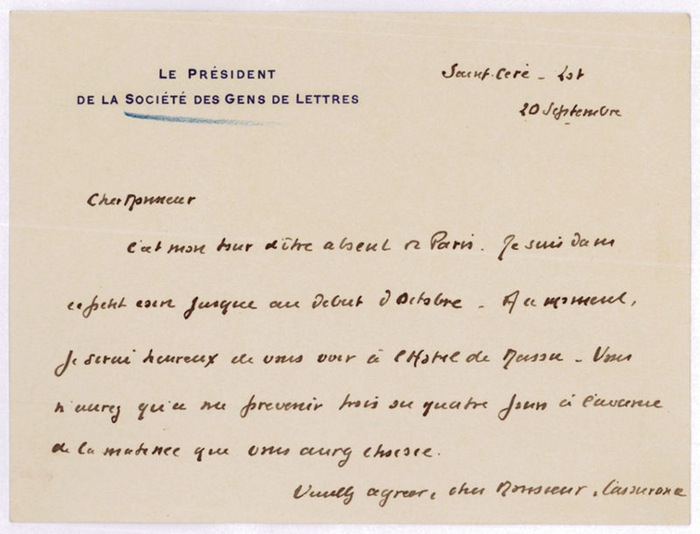 LE PRÉSIDENT
DE LA SOCIÉTÉ DES GENS DE LETTRES
Saint-Céré - Lot
20 Septembre
Cher Monsieur
C'est mon tour d'être absent de Paris. Je suis dans
ce petit coin jusque au debut d'Octobre - A ce moment,
je serai heureux de vous voir à l'Hotel de Massa - Vous
n'aurez qu'a me prevenir trois ou quatre jours à l'avance
de la matinée que vous aurez choisie.
Veuillez agreer, cher Monsieur, l'assurance